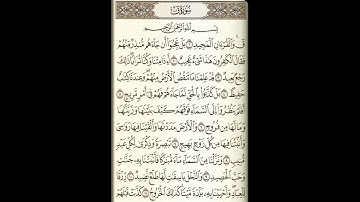 سُورَةُ قٓ
بِسْمِ ٱللَّهِ ٱلرَّحْمَٰنِ ٱلرَّحِيمِ
قٓ وَٱلْقُرْءَانِ ٱلْمَجِيدِ ١ بَلْ عَجِبُوٓا۟ أَن جَآءَهُم مُّنذِرٌ مِّنْهُمْ
فَقَالَ ٱلْكَٰفِرُونَ هَٰذَا شَىْءٌ عَجِيبٌ ٢ أَءِذَا مِتْنَا وَكُنَّا تُرَابًا ذَٰلِكَ
رَجْعٌۢ بَعِيدٌ ٣ قَدْ عَلِمْنَا مَا تَنقُصُ ٱلْأَرْضُ مِنْهُمْ وَعِندَنَا كِتَٰبٌ
حَفِيظٌۢ ٤ بَلْ كَذَّبُوا۟ بِٱلْحَقِّ لَمَّا جَآءَهُمْ فَهُمْ فِىٓ أَمْرٍ مَّرِيجٍ ٥
أَفَلَمْ يَنظُرُوٓا۟ إِلَى ٱلسَّمَآءِ فَوْقَهُمْ كَيْفَ بَنَيْنَٰهَا وَزَيَّنَّٰهَا
وَمَا لَهَا مِن فُرُوجٍ ٦ وَٱلْأَرْضَ مَدَدْنَٰهَا وَأَلْقَيْنَا فِيهَا رَوَٰسِىَ
وَأَنۢبَتْنَا فِيهَا مِن كُلِّ زَوْجٍۭ بَهِيجٍ ٧ تَبْصِرَةً وَذِكْرَىٰ لِكُلِّ عَبْدٍ
مُّنِيبٍ ٨ وَنَزَّلْنَا مِنَ ٱلسَّمَآءِ مَآءً مُّبَٰرَكًا فَأَنۢبَتْنَا بِهِۦ جَنَّٰتٍ
وَحَبَّ ٱلْحَصِيدِ ٩ وَٱلنَّخْلَ بَاسِقَٰتٍ لَّهَا طَلْعٌ نَّضِيدٌ ١٠ رِّزْقًا
لِّلْعِبَادِ وَأَحْيَيْنَا بِهِۦ بَلْدَةً مَّيْتًا كَذَٰلِكَ ٱلْخُرُوجُ ١١ كَذَّبَتْ قَبْلَهُمْ